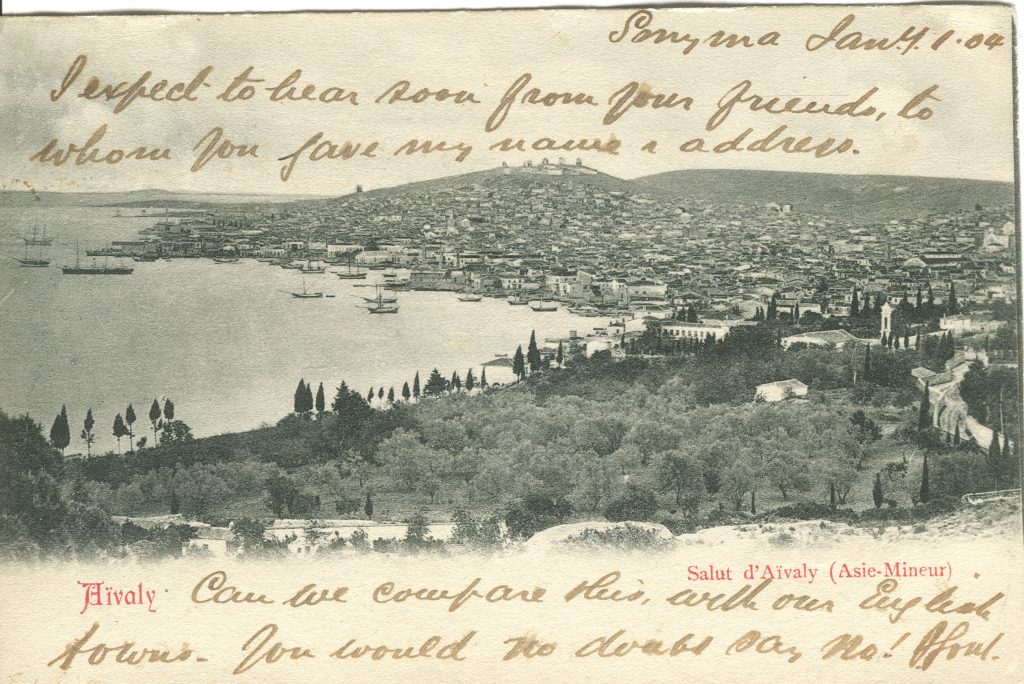 Smyrna Jany. 1.04
I expect to hear soon from your friends, to
whom you gave my name & address.
Salut d'Aïvaly (Asie-Mineur)
Aïvaly
Can we compare this, with our English
towns. You would no doubt say No!